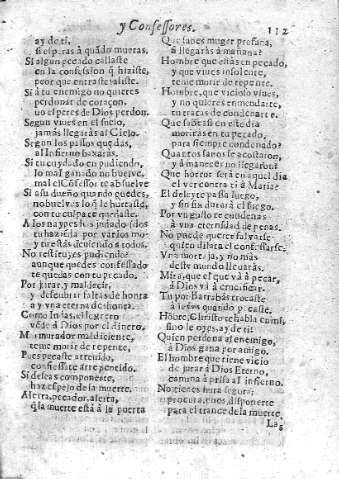 y Confessores. 112
ay de ti,
si esperas à quãdo mueras.
Si algun pecado callaste
en la confession q̃ hiziste,
peor que entraste saliste.
Si à tu enemigo no quieres
perdonar de coraçon,
no esperes de Dios perdon.
Segun viues en el suelo,
jamàs llegaràs al Cielo.
Segun los passos que das,
al Infierno baxaràs.
Si tu cuydado en pudiendo,
lo mal ganado no buelue,
mal el Cõfessor te absuelve
Si a su dueño quando puedes,
no buelves lo q̃ le hurtaste,
con tu culpa te quedaste.
A los naypes has
tu hazienda por varios
y te estàs deviendo à todos.
No restituyes pudiendo:
aunque quedes confessado
te quedas con tu pecado.
Por jurar, y maldezir,
y descubrir faltas de honra
a vna eterna deshonra.
Como Iudas, el logrero
vende à Dios por el dinero,
Murmurador maldiciente,
teme morir de repente,
Pues pecaste atreuido,
confiessate arrepentido.
Si deseas componerte,
haz espejo de la muerte.
Alerta, pecador, alerta,
q̃ la muerte està à la puerta
Que sabes muger profana,
si llegaràs à mañana?
Hombre que estàs en pecado,
y que viues insolente,
teme morir de repente.
Hombre, que vicioso viues,
y no quieres enmendarte,
tu tratas de condenarte.
Que sabes si en este dia
moriràs en tu pecado,
para siempre condenado?
Quantos sanos se acostaron,
y à manecer no llegaron?
Que horror serà en aquel dia
el ver contra ti à Maria?
El deleyte passa luego,
y sin fin durarà el fuego.
Por vn gusto te condenas
à vna eternidad de penas.
No puede querer salvarse
quien dilata el confessarse.
Vna mortaja, y no mas
deste mundo lleuaràs.
Mira, que el que và à pecar,
à Dios và à crucificar.
Tu por Barrabàs trocaste
à Iesus quando pecaste.
Hõbre, Christo te habla
sino le oyes, ay de ti!
Quien perdona al enemigo,
à Dios gana por amigo.
El hombre que tiene vicio
de jurar à Dios Eterno,
camina à prisa al infierno.
No tienes hora segura;
procura, pues, disponerte
para el trance de la muerte.
Las